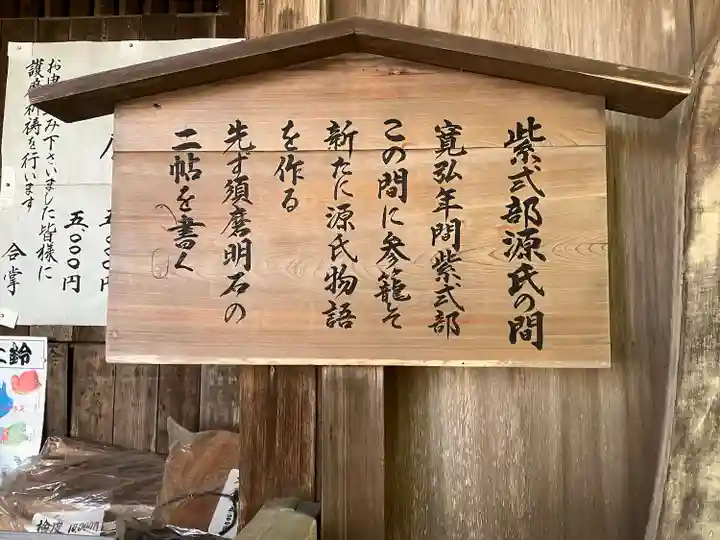 紫式部源氏の間
寛弘年間紫式部
この間に参籠そ
新たに源氏物語
を作る
先ず須磨明石の
二帖を書く
お申込み下さいました皆様に
護摩祈祷を行います
五〇〇〇円
五〇〇〇円
合掌
鈴
檜皮 10,000円